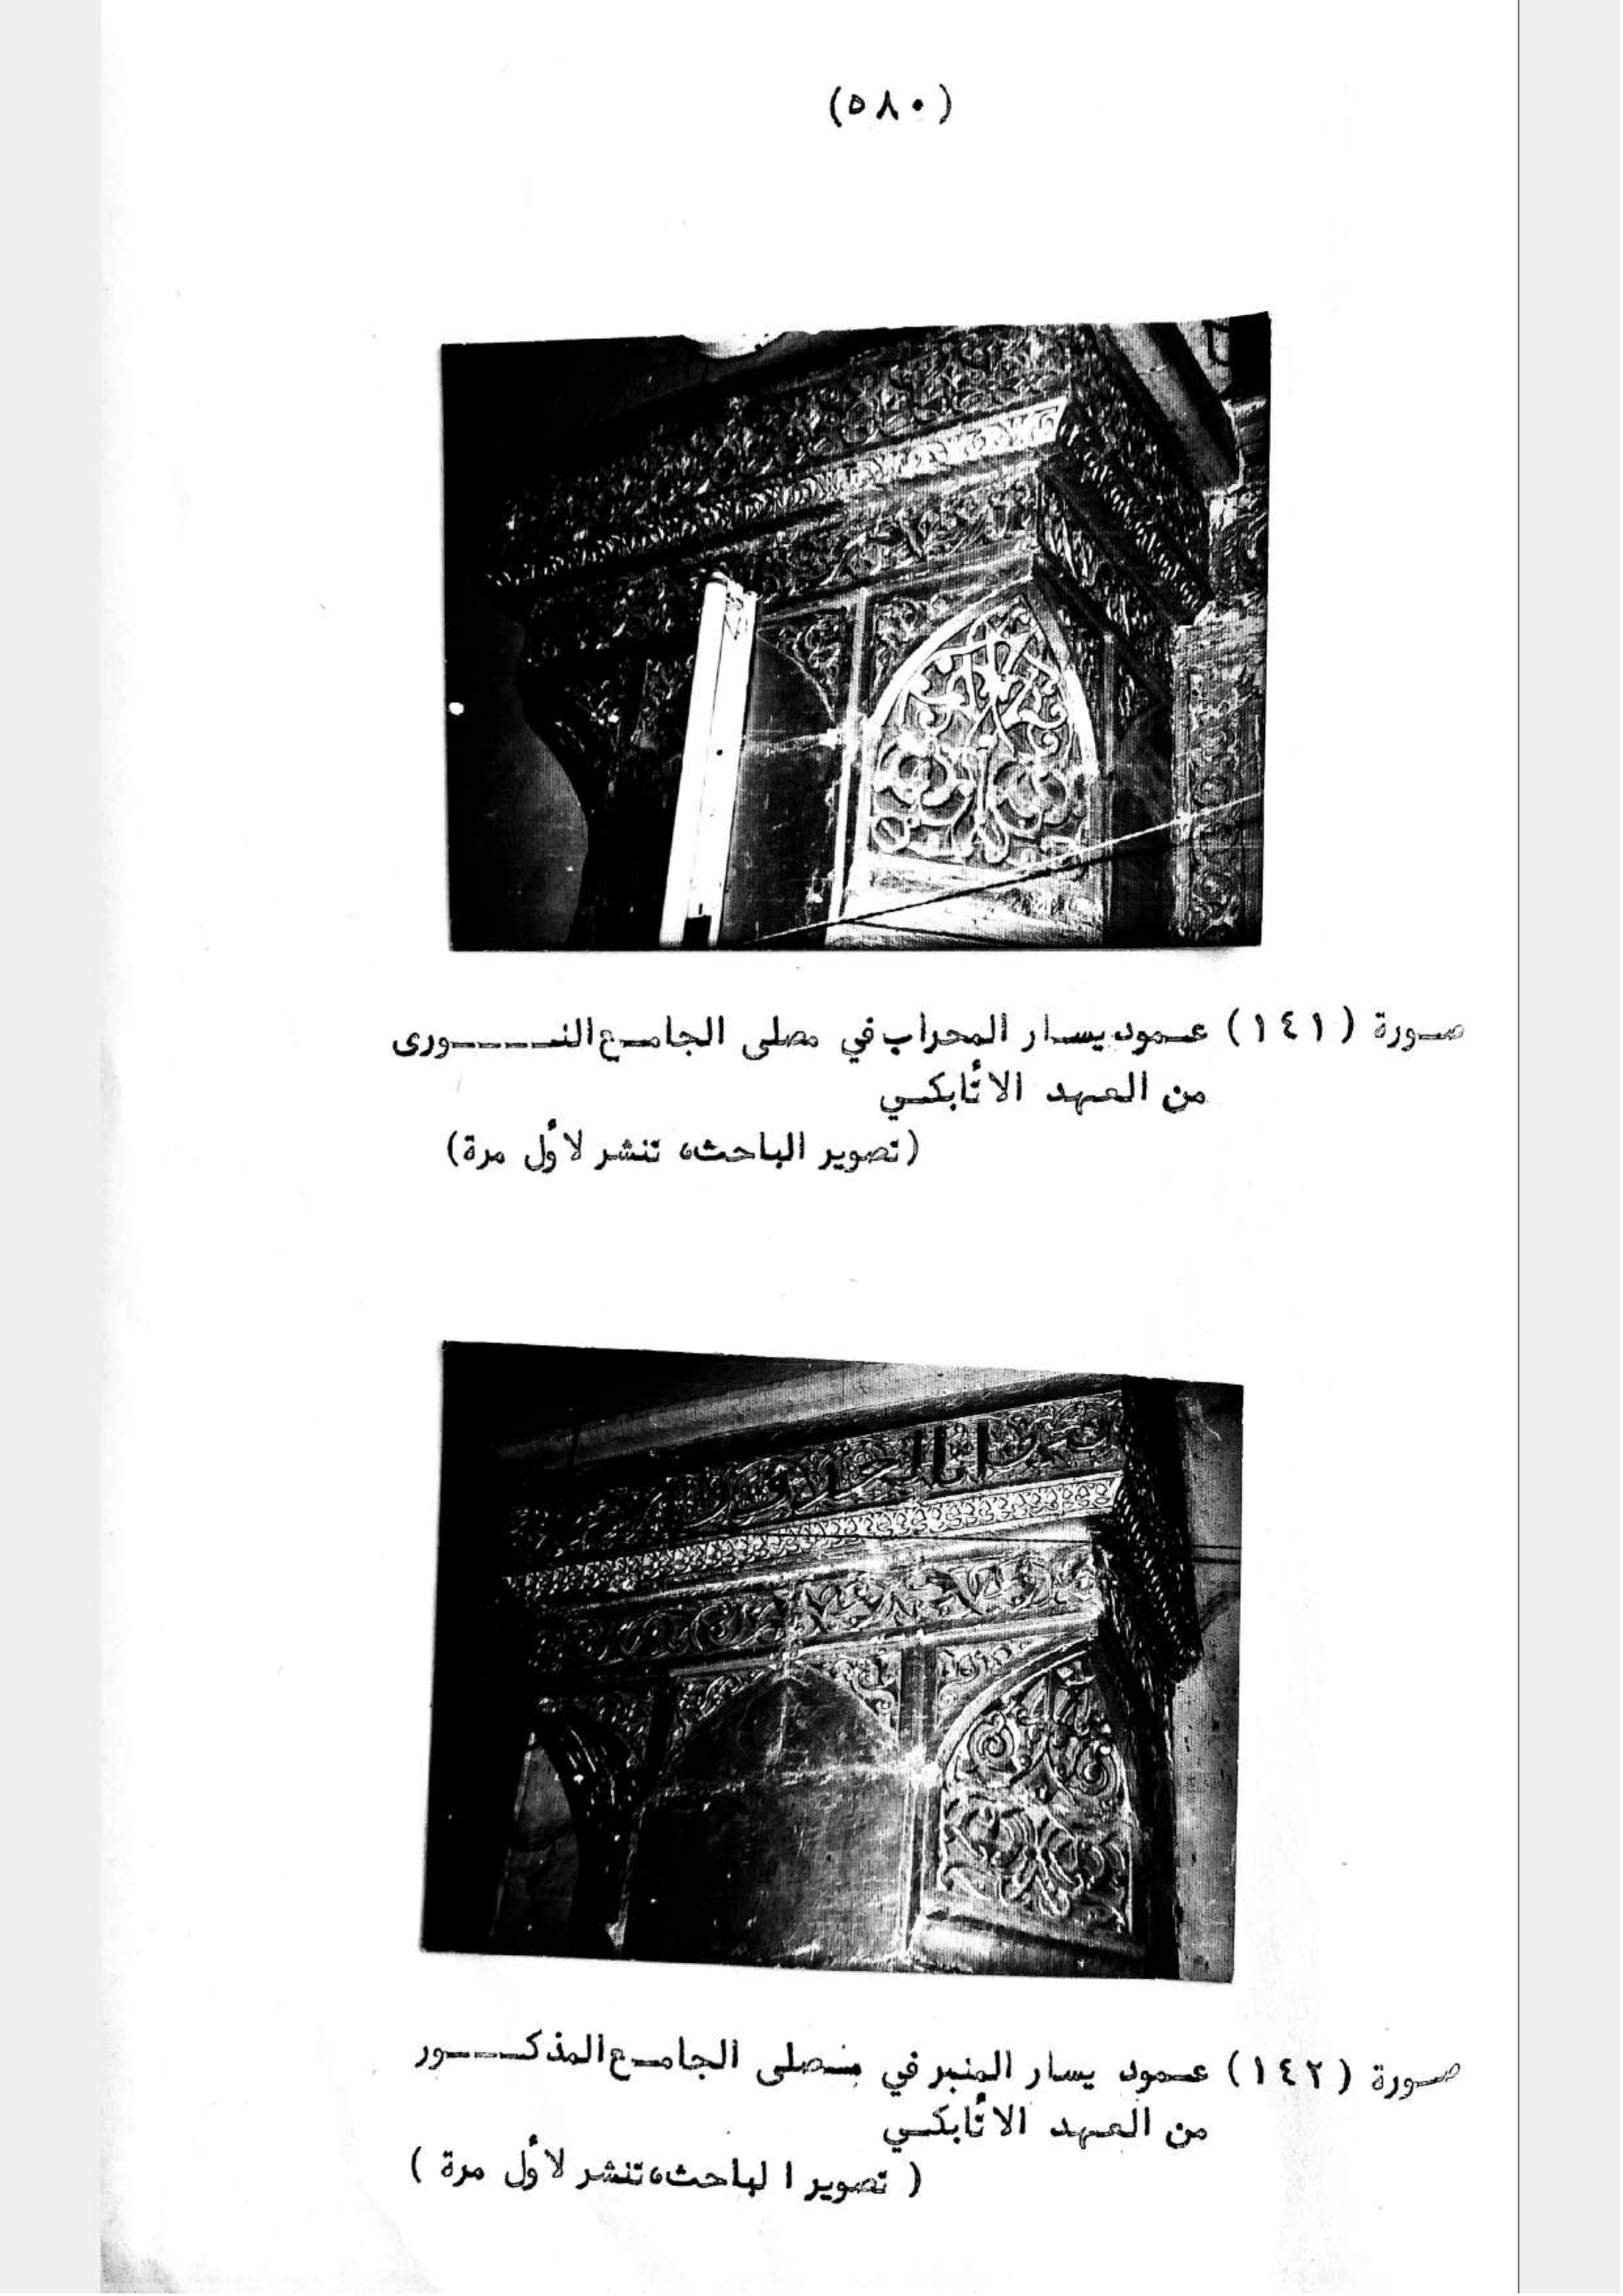 (٥٨٠)
صورة (١٤١) عمود يسار المحراب في مصلى الجامع النورى
من العهد الاتٔابكي
(تصوير الباحث، تنشر لاؤل مرة)
صورة (١٤٢) عمود يسار المنبر في مصلى الجامع المذكور
من العهد الاتٔابكي
(تصوير الباحث، تنشر لاؤل مرة)